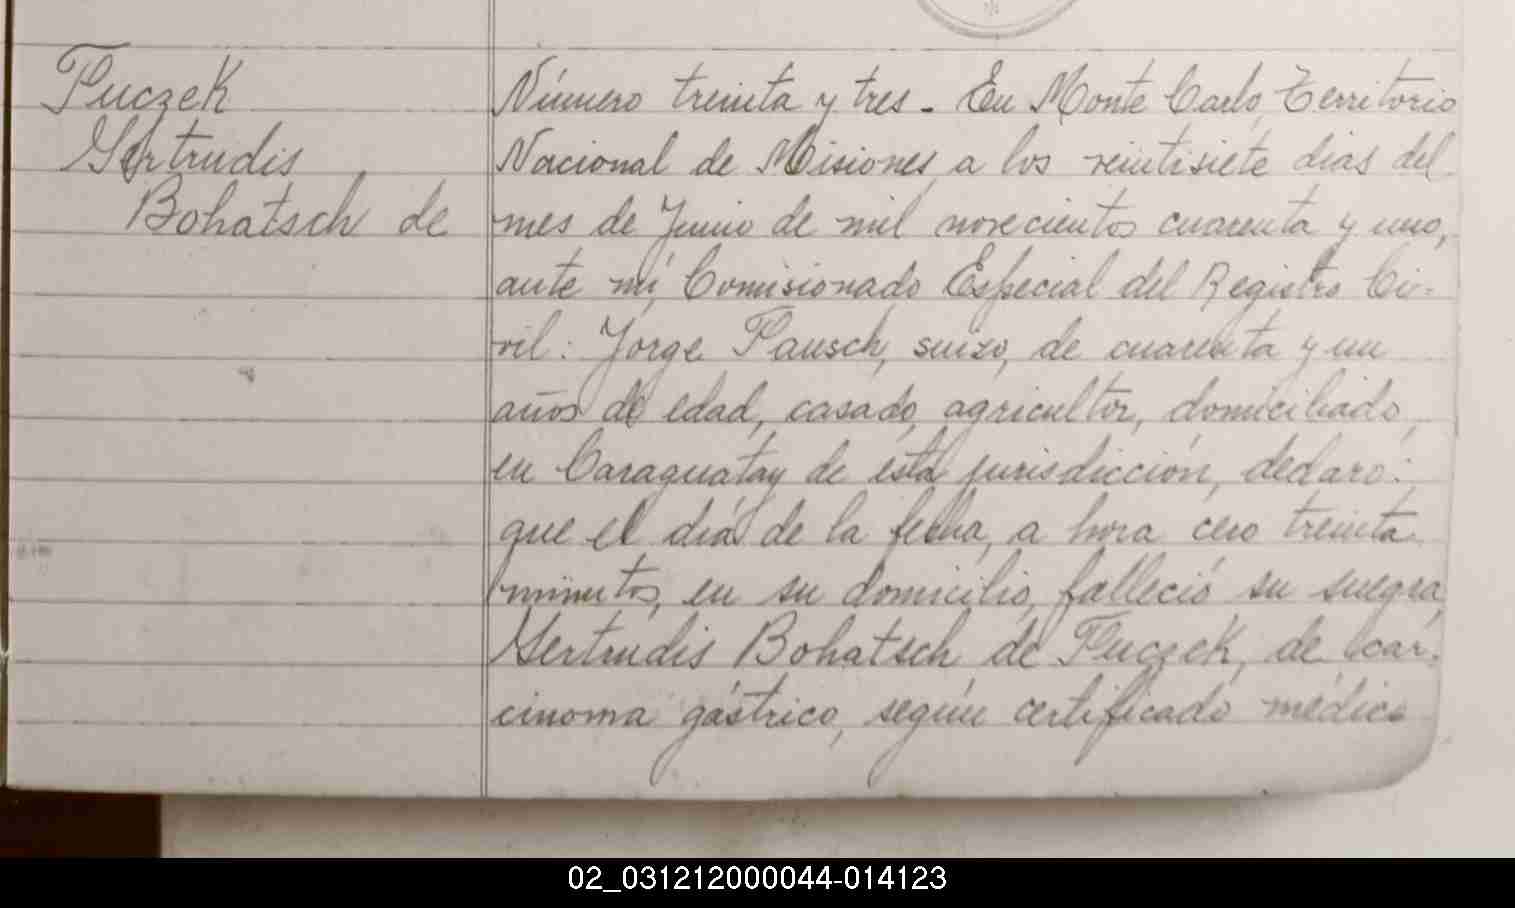 Puczek
Gertrudis
Bohatsch de
Número treinta y tres - En Monte Carlo, Territorio
Nacional de Misiones, a los veintisiete dias del
mes de Junio de mil novecientos cuarenta y uno,
ante mí, Comisionado Especial del Registro Ci-
vil: Jorge Pausch, suizo, de cuarenta y un
años de edad, casado, agricultor, domiciliado
en Caraguatay de esta jurisdicción, declaro:
que el día de la fecha, a hora cero treinta
minutos, en su domicilio, falleció su suegra,
Gertrudis Bohatsch de Puczek, de car-
cinoma gástrico, según certificado médico
02_031212000044-014123